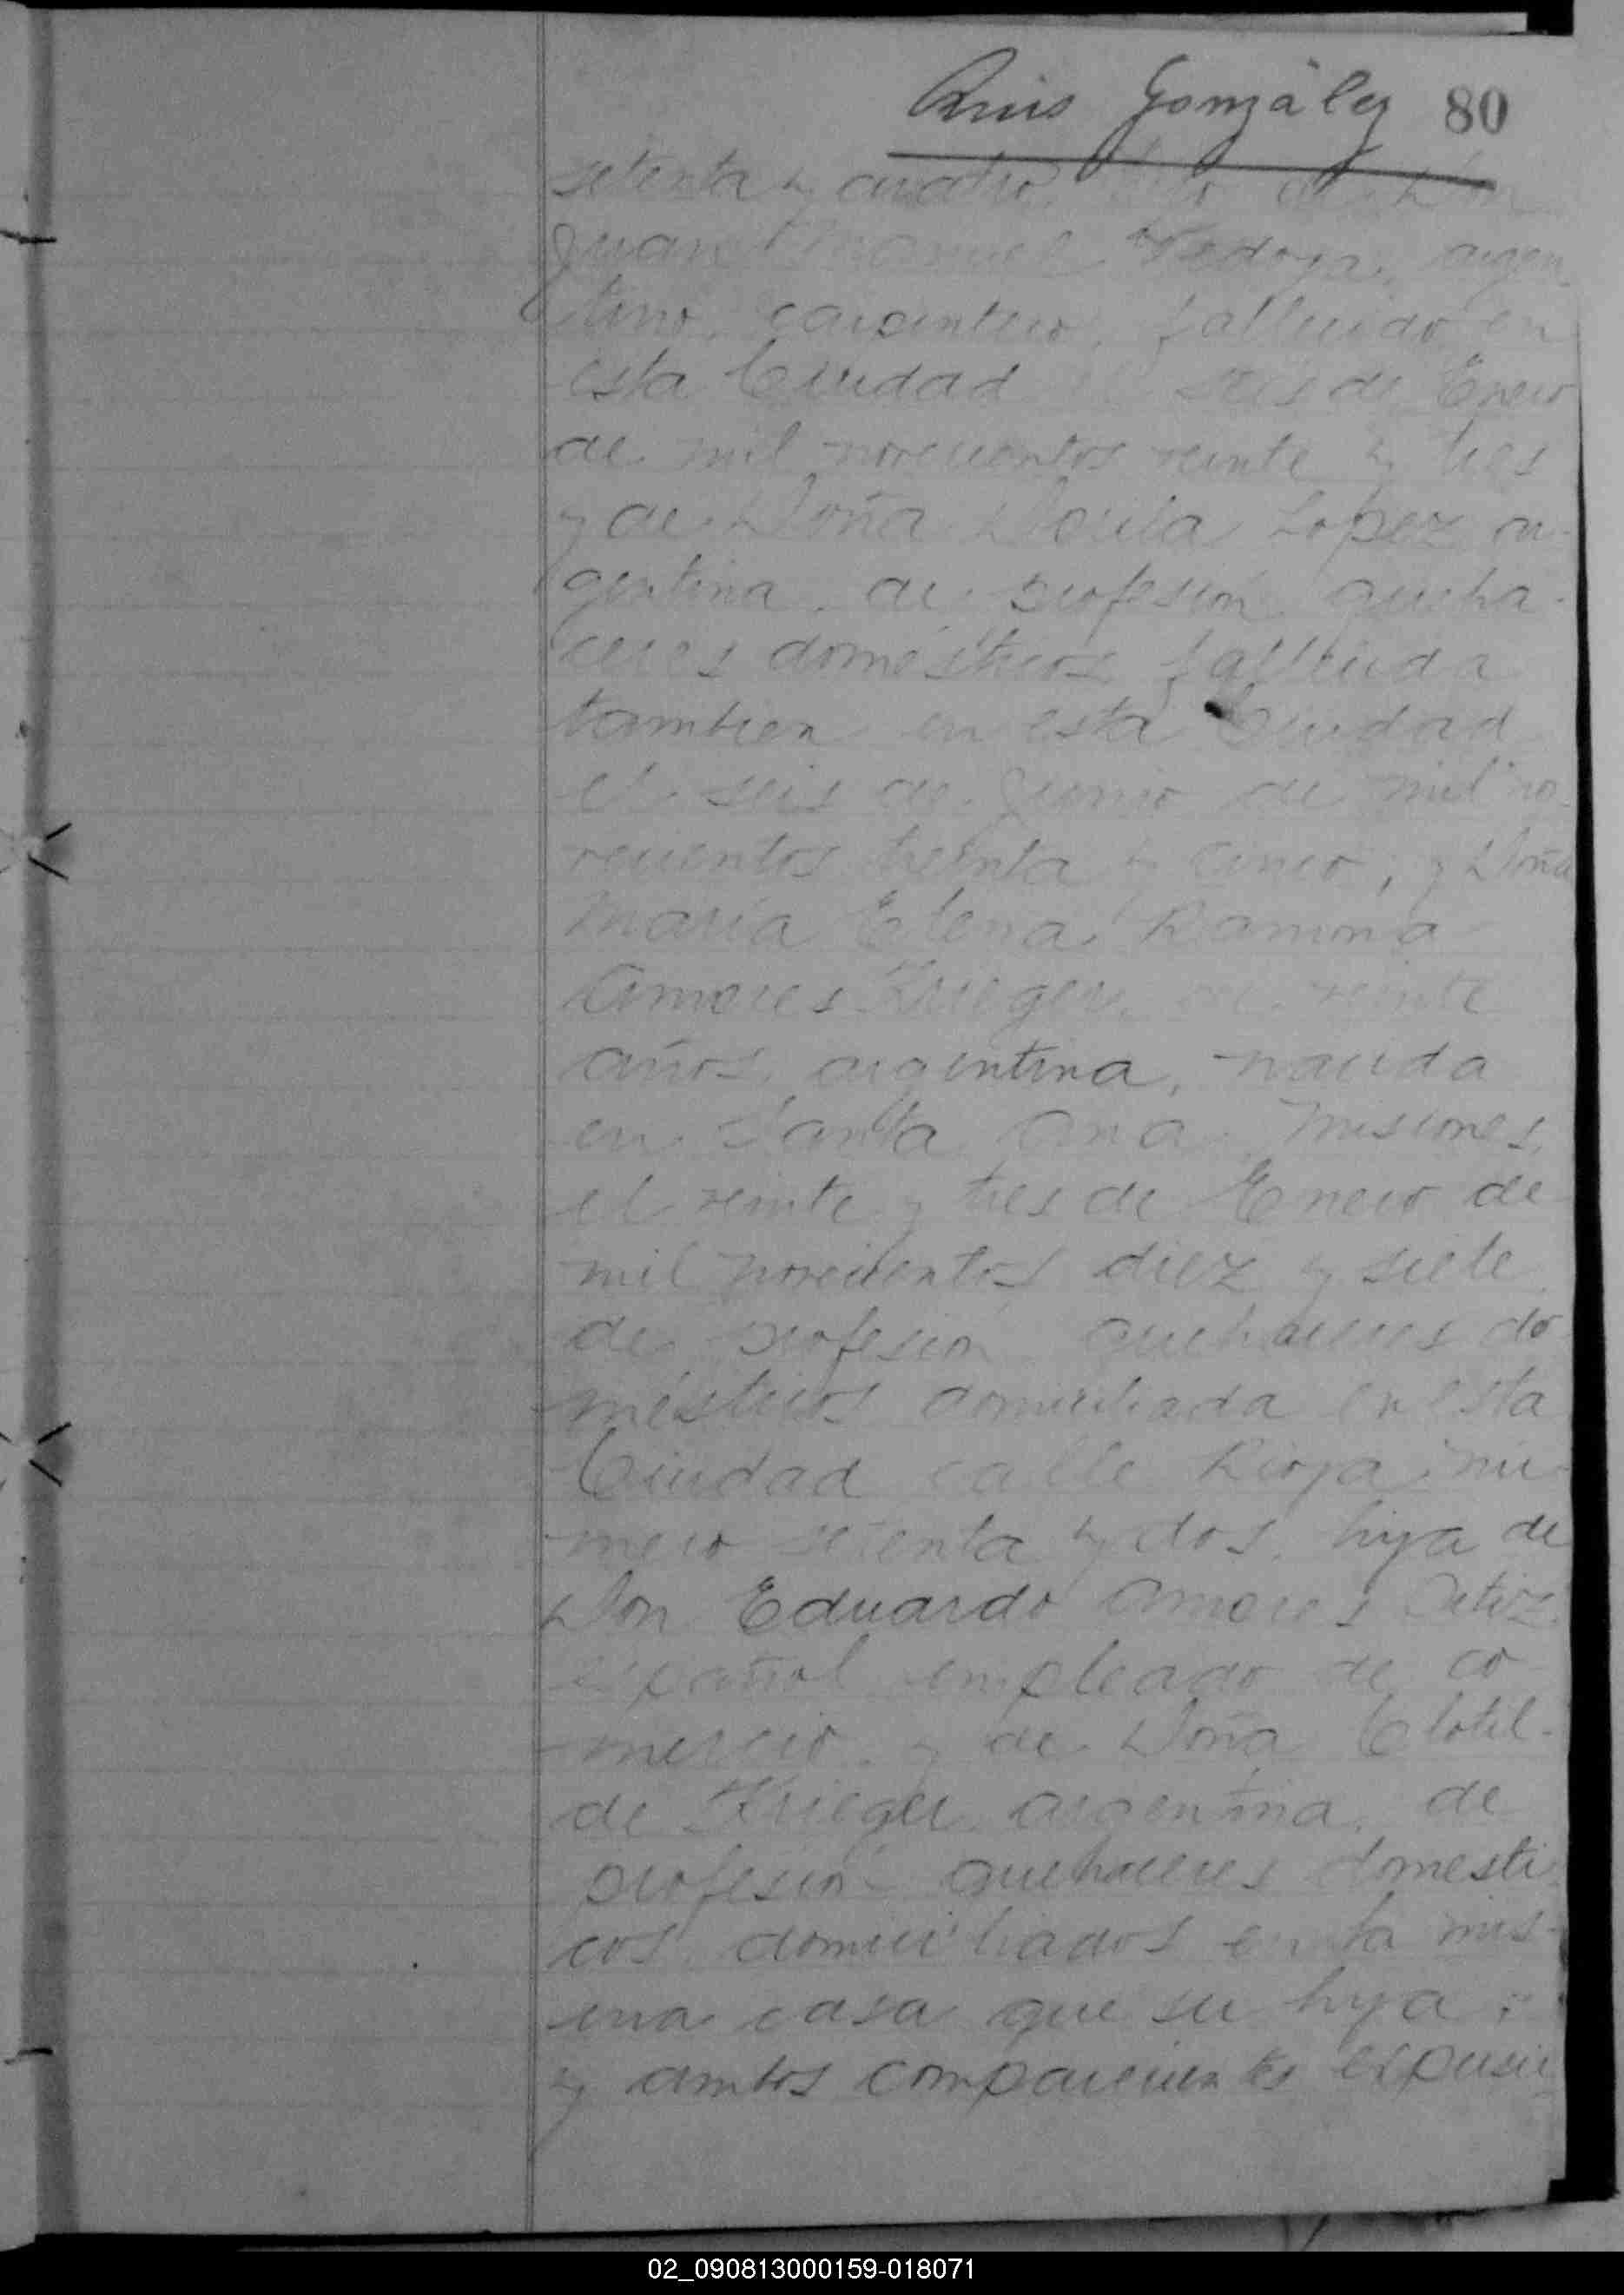 Luis González 80
setenta y cuatro, hijo de Don
Juan Manuel Bedoya, argen-
tino, carpintero, fallecido en
esta Ciudad el seis de Enero
de mil novecientos veinte y tres
y de Doña Lopez ar-
gentina, de profesión queha-
ceres domésticos fallecida
tambien en esta Ciudad
el seis de Junio de mil no-
vecientos treinta y cinco; y Doña
María Elena Ramona
Amores Krieger, de veinte
años, argentina, nacida
en Santa Ana, Misiones,
el veinte y tres de Enero de
mil novecientos diez y siete
de profesión quehaceres do-
mésticos domiciliada en esta
Ciudad calle Rioja nú-
mero setenta y dos, hija de
Don Eduardo Amores Ortiz
español empleado de co-
mercio, y de Doña Clotil-
de Krieger argentina, de
profesión quehaceres domesti
cos domiciliados en la mis-
ma casa que su hija;
y ambos comparecientes expusie
02_090813000159-018071